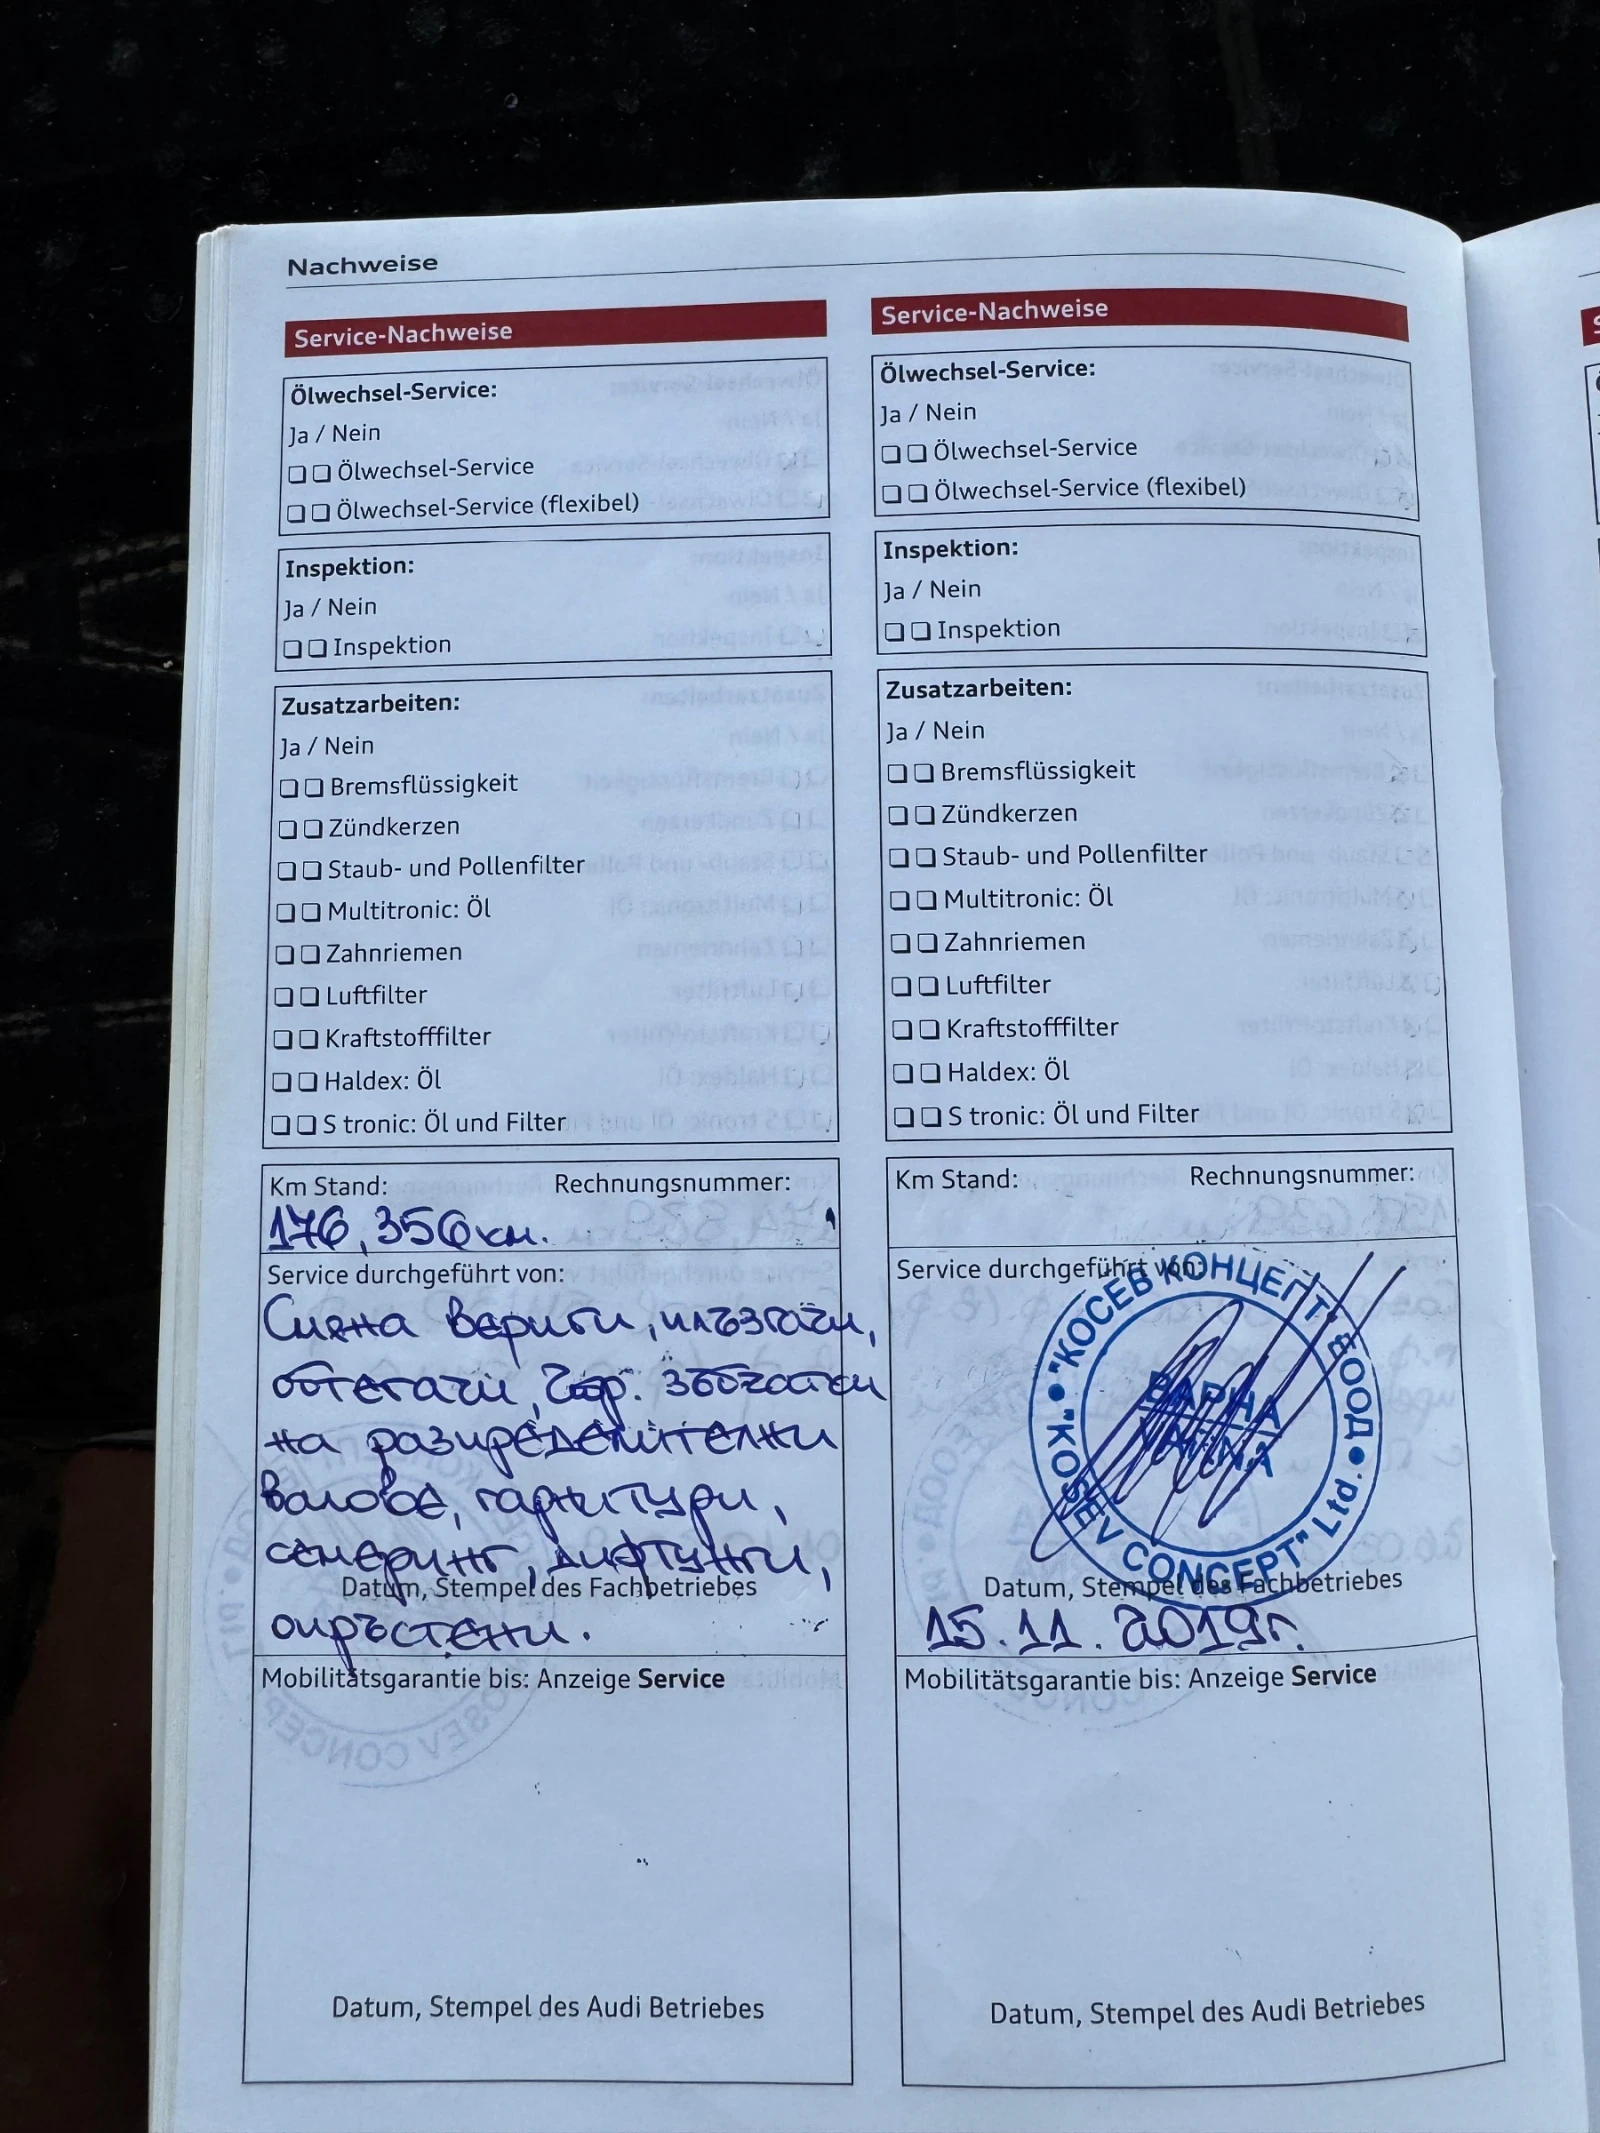 Nachweise
Service-Nachweise
Ölwechsel-Service:
Ja / Nein
Ölwechsel-Service
Ölwechsel-Service (flexibel)
Inspektion:
Ja / Nein
Inspektion
Zusatzarbeiten:
Ja / Nein
Bremsflüssigkeit
Zündkerzen
Staub- und Pollenfilter
Multitronic: Öl
Zahnriemen
Luftfilter
Kraftstofffilter
Haldex: Öl
S tronic: Öl und Filter
Km Stand: Rechnungsnummer:
176,356км.
Service durchgeführt von:
Смяна вериги, плъзгачи,
обтегачи, зъбчатки
на разпределителни
валове, гарнитури,
семеринг, лифтунги,
Datum, Stempel des Fachbetriebes
опръстени.
Mobilitätsgarantie bis: Anzeige Service
Datum, Stempel des Audi Betriebes
Service-Nachweise
Ölwechsel-Service:
Ja / Nein
Ölwechsel-Service
Ölwechsel-Service (flexibel)
Inspektion:
Ja / Nein
Inspektion
Zusatzarbeiten:
Ja / Nein
Bremsflüssigkeit
Zündkerzen
Staub- und Pollenfilter
Multitronic: Öl
Zahnriemen
Luftfilter
Kraftstofffilter
Haldex: Öl
S tronic: Öl und Filter
Km Stand: Rechnungsnummer:
Service durchgeführt von:
"КОСЕВ КОНЦЕПТ" ЕООД
ВАРНА
VARNA
"KOSEV CONCEPT" Ltd.
Datum, Stempel des Fachbetriebes
15.11.2019г.
Mobilitätsgarantie bis: Anzeige Service
Datum, Stempel des Audi Betriebes